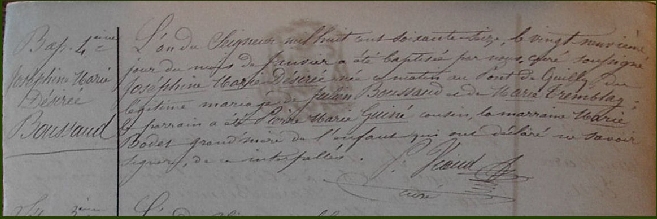 Bap. 4ième
Joséphine Marie
Désirée
Boussaud
L'an du Seigneur mil huit cent soixante seize, le vingt neuvième
jour du mois de Janvier a été baptisée par nous, curé soussigné
Joséphine Marie Désirée née ce matin au Pont de Guilly du
légitime mariage de Julien Boussaud et de Marie Tremblay
le parrain a été Marie Guiné cousin, la marraine Marie
Bodet grand'mère de l'enfant qui ont déclaré ne savoir
signer de ce interpellés.
curé
3ième
L'an du